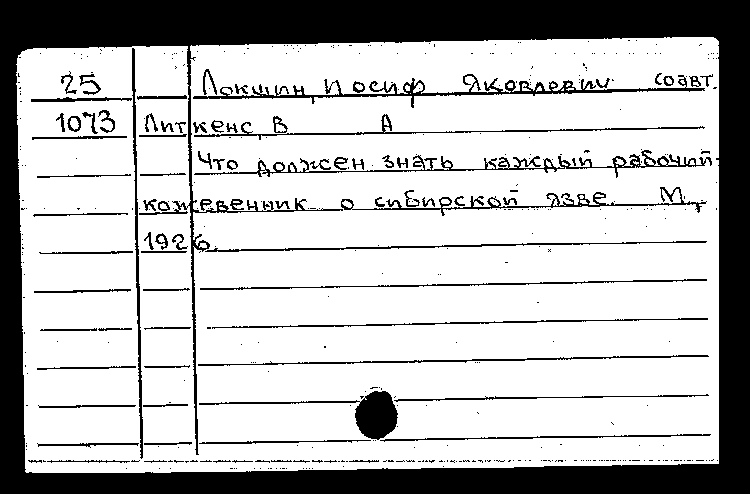 25 Локшин, Иосиф Яковлевич соавт.
1073 Литкенс, В А
Что должен знать каждый рабочий-
кожевенник о сибирской язве. М.,
1926.